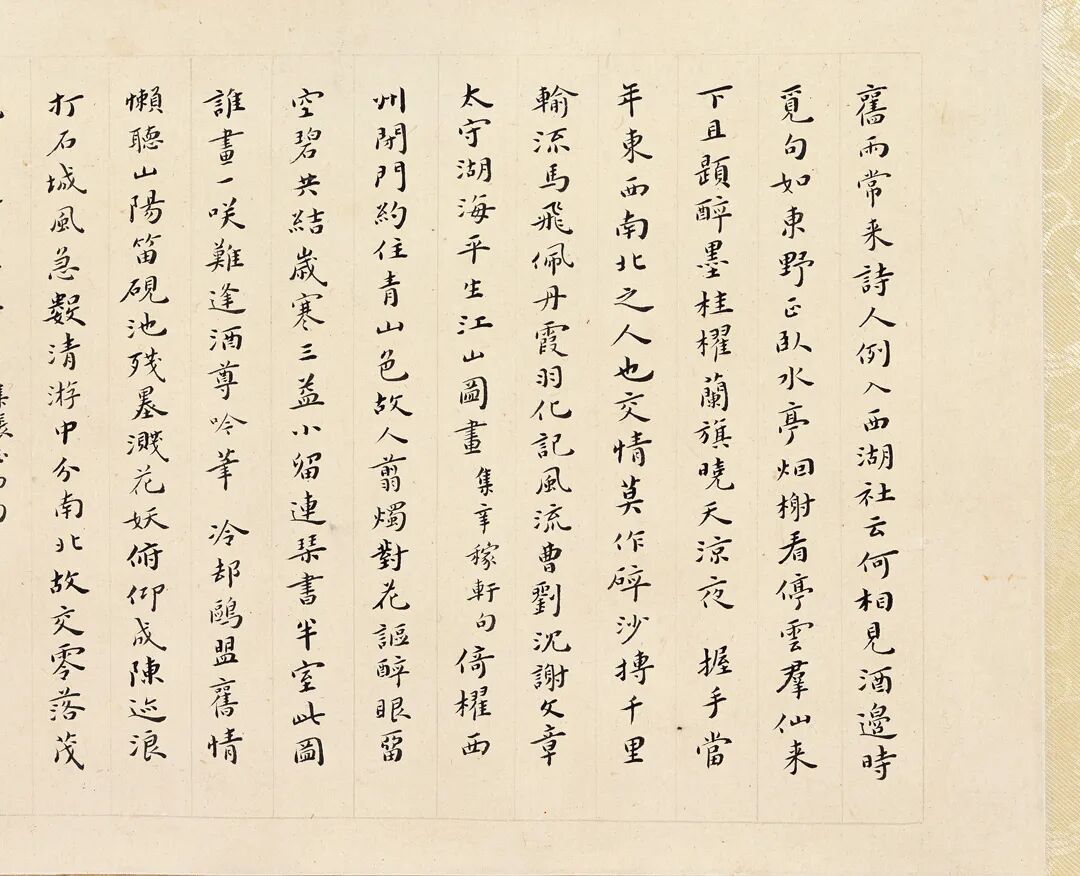 舊雨常来詩人例入西湖社云何相見酒邊時
覓句如東野正臥水亭烟榭看停雲羣仙来
下且題醉墨桂櫂蘭旗曉天涼夜 握手當
年東西南北之人也交情莫作碎沙摶千里
輸流馬飛佩丹霞羽化記風流曹劉沈謝文章
太守湖海平生江山圖畫 集辛稼軒句 倚櫂西
州閉門約住青山色故人翦燭對花謳醉眼留
空碧共結歲寒三益小留連琹書半室此圖
誰畫一咲難逢酒尊吟筆 冷却鷗盟舊情
懶聽山陽笛硯池殘墨濺花妖俯仰成陳迹浪
打石城風急數清游中分南北故交零落茂